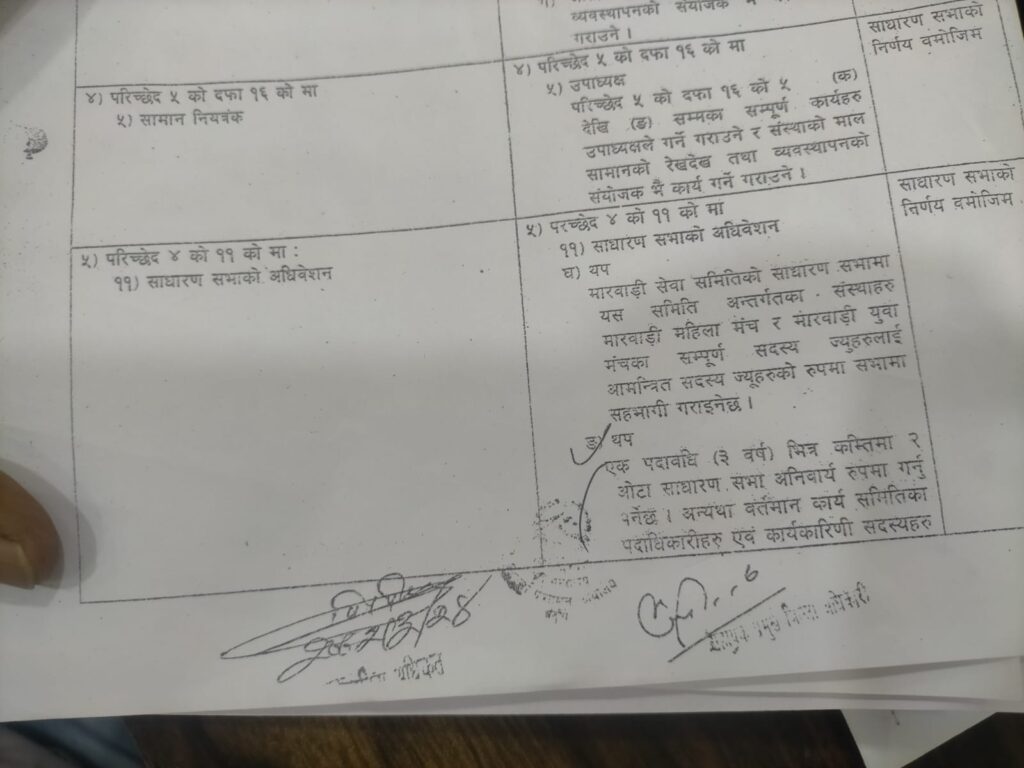 व्यवस्थापनको संयोजक
गराउने ।
साधारण सभाको
निर्णय वमोजिम
४) परिच्छेद ५ को दफा १६ को मा
५) सामान नियन्त्रक
४) परिच्छेद ५ को दफा १६ को मा
५) उपाध्यक्ष
परिच्छेद ५ को दफा १६ को ५ (क)
देखि (ङ) सम्मका सम्पूर्ण कार्यहरु
उपाध्यक्षले गर्ने गराउने र संस्थाको माल
सामानको रेखदेख तथा व्यवस्थापनको
संयोजक भै कार्य गर्ने गराउने ।
साधारण सभाको
निर्णय वमोजिम
५) परिच्छेद ४ को ११ को मा :
११) साधारण सभाको अधिवेशन
५) परच्छेद ४ को ११ को मा
११) साधारण सभाको अधिवेशन
घ) थप
मारवाडी सेवा समितिको साधारण सभामा
यस समिति अन्तर्गतका संस्थाहरु
मारवाडी महिला मंच र मारवाडी युवा
मंचका सम्पूर्ण सदस्य ज्युहरुलाई
आमन्त्रित सदस्य ज्यूहरुको रुपमा सभामा
सहभागी गराइनेछ ।
ङ) थप
एक पदावधि (३ वर्ष) भित्र कम्तिमा २
ओटा साधारण सभा अनिवार्य रुपमा गर्नु
पर्नेछ । अन्यथा वर्तमान कार्य समितिका
पदाधिकारीहरु एवं कार्यकारिणी सदस्यहरु
प्रमुख जिल्ला अधिकारी